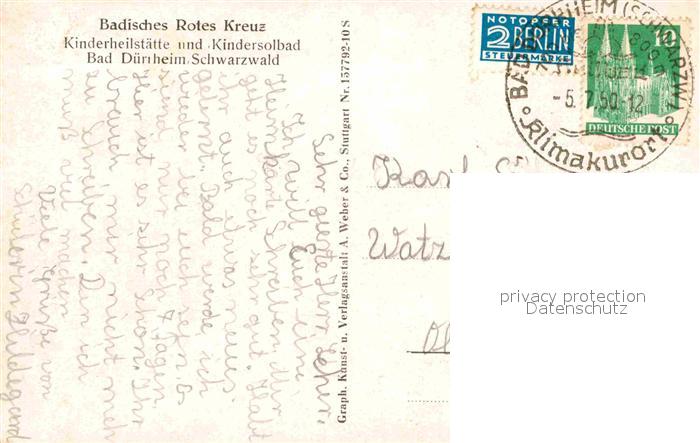 Badisches Rotes Kreuz
Kinderheilstätte und Kindersolbad
Bad Dürrheim/Schwarzwald
NOTOPFER
2 BERLIN
STEUERMARKE
10
DEUTSCHE POST
BAD DÜRRHEIM (SCHWARZW.)
-5.7.50-12
Klimakurort
Graph. Kunst- u. Verlagsanstalt A. Weber & Co., Stuttgart Nr. 157792-10 S
Sehr geerte Herr Lehrer.
Ich will Euch eine
Heimkarte Schreiben. Mir
geht es noch sehr gut. Habt
ihr auch etwas neues
gelernt. Bald werde ich
wieder bei euch sein
sind nur noch 7 Tagen
Hier ist es sehr schön. Ihr
brauch mir nicht meh
zu schreiben. Den ich
muß viel machen
Viele Grüße von
Schülerin Hildegard
Karl
Watz
privacy protection
Datenschutz